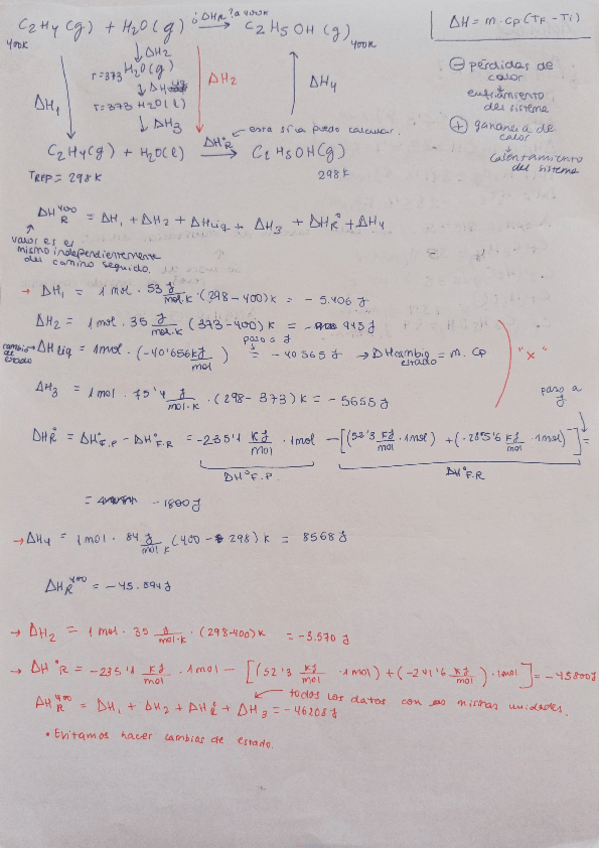 ¿ΔHR? a 400K
C2H4(g) + H2O(g) → C2H5OH(g)
400K 400K
ΔH = m·Cp(TF-Ti)
↓ΔH2
T=373 H2O(g)
↓ΔH
T=373 H2O(l)
↓ΔH3
ΔH1
ΔH2
ΔH4
⊖ pérdidas de
calor
↓
enfriamiento
del sistema
⊕ ganancia de
calor
↓
calentamiento
del sistema
esta si la puedo calcular.
C2H4(g) + H2O(l) → ΔH°R C2H5OH(g)
TREF = 298K 298K
ΔHR^400 = ΔH1 + ΔH2 + ΔHliq + ΔH3 + ΔHR° + ΔH4
valor es el
mismo independientemente
del camino seguido.
→ ΔH1 = 1mol · 53 J/mol·K · (298-400)K = -5.406 J
ΔH2 = 1mol · 35 J/mol·K (373-400)K = -945 J
paso a J
cambio de estado ΔHliq = 1mol · (-40'656 kJ/mol) = -40565 J → ΔHcambio estado = m·Cp
"x"
ΔH3 = 1mol · 75'4 J/mol·K · (298-373)K = -5655 J
paso a
J
ΔHR° = ΔH°F.P - ΔH°F.R = -235'1 kJ/mol · 1mol - [(52'3 kJ/mol · 1mol) + (-285'6 kJ/mol · 1mol)] =
ΔH°F.P. ΔH°F.R
= -1800 J
→ ΔH4 = 1mol · 84 J/mol·K (400-298)K = 8568 J
ΔHR^400 = -45.594 J
→ ΔH2 = 1mol · 35 J/mol·K · (298-400)K = -3.570 J
→ ΔH°R = -235'1 kJ/mol · 1mol - [(52'3 kJ/mol · 1mol) + (-241'6 kJ/mol) · 1mol] = -45800 J
todos los datos con las mismas unidades.
ΔHR^400 = ΔH1 + ΔH2 + ΔHR° + ΔH3 = -46208 J
• Evitamos hacer cambias de estado.